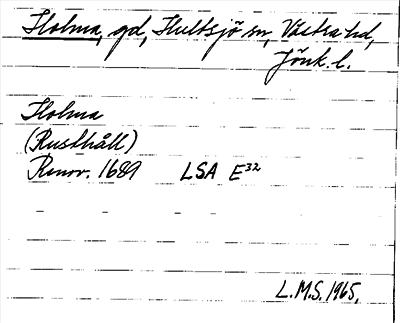 Holma, gd, Hultsjö sn, Västra hd,
Jönk. l.
Holma
(Rusthåll)
Renov. 1689 LSA E³²
L.M.S. 1965.